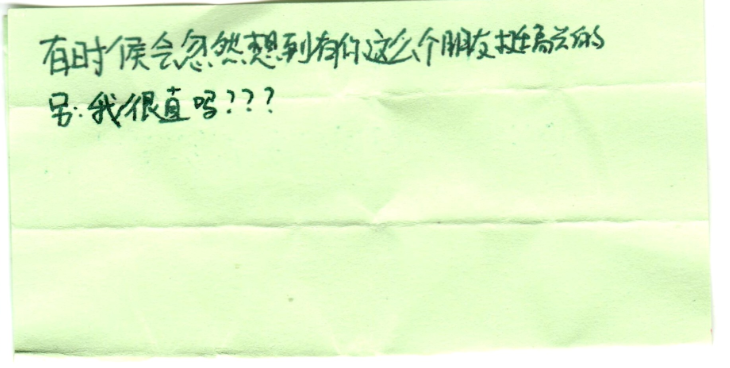 有时候会忽然想到有你这么个朋友挺高兴的
另:我很直吗???